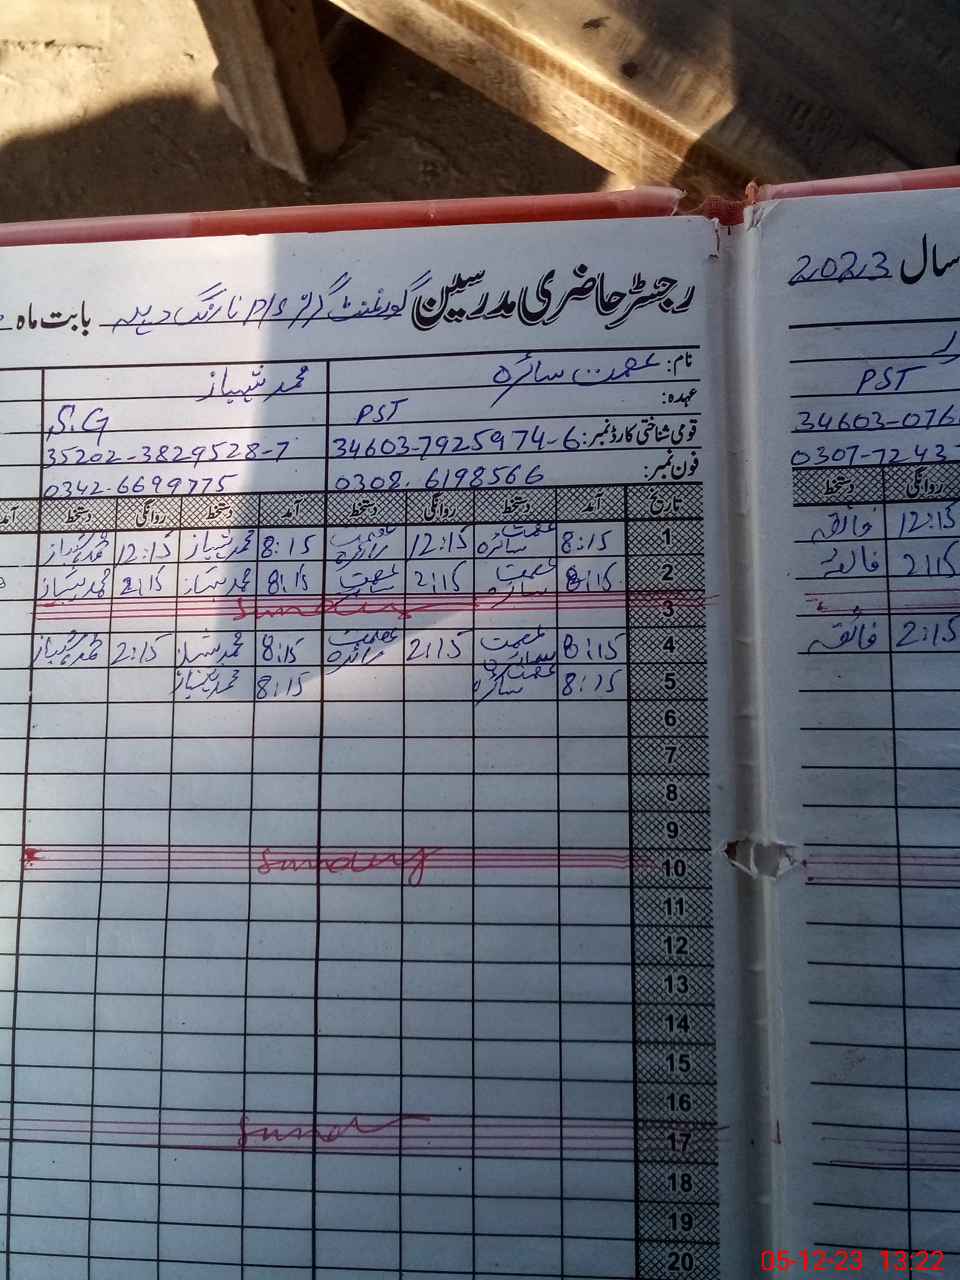 سال 2023
رجسٹر حاضری مدرسین گورنمنٹ گرلز P/S نارنگ دہلہ بابت ماہ
نام: عصمت سائرہ محمد شہباز
عہدہ: PST S.G PST
قومی شناختی کارڈ نمبر: 34603-7925974-6 35202-3829528-7 34603-076
فون نمبر: 0308.6198566 0342-6699775 0307-7243
تاریخ آمد دستخط روانگی دستخط آمد دستخط روانگی دستخط آمد روانگی دستخط
1 8:15 عصمت سائرہ 12:15 عصمت سائرہ 8:15 محمد شہباز 12:15 محمد شہباز 12:15 فائقہ
2 8:15 عصمت سائرہ 2:15 عصمت سائرہ 8:15 محمد شہباز 2:15 محمد شہباز 2:15 فائقہ
3 Sunday
4 8:15 عصمت سائرہ 2:15 عصمت سائرہ 8:15 محمد شہباز 2:15 محمد شہباز 2:15 فائقہ
5 8:15 عصمت سائرہ 8:15 محمد شہباز
6
7
8
9
10 Sunday
11
12
13
14
15
16
17 Sunda
18
19
20
05-12-23 13:22